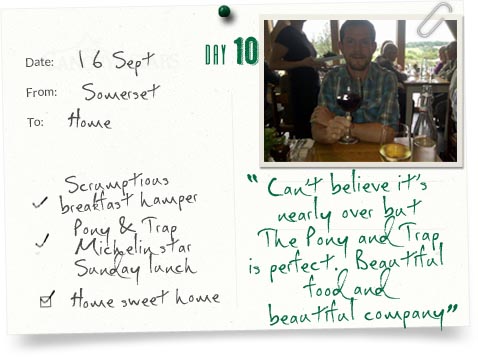 DAY 10
Date: 16 Sept
From: Somerset
To: Home
Scrumptious
breakfast hamper
Pony & Trap
Michelin star
Sunday lunch
Home sweet home
“ Can't believe it's
nearly over but
The Pony and Trap
is perfect. Beautiful
food and
beautiful company”